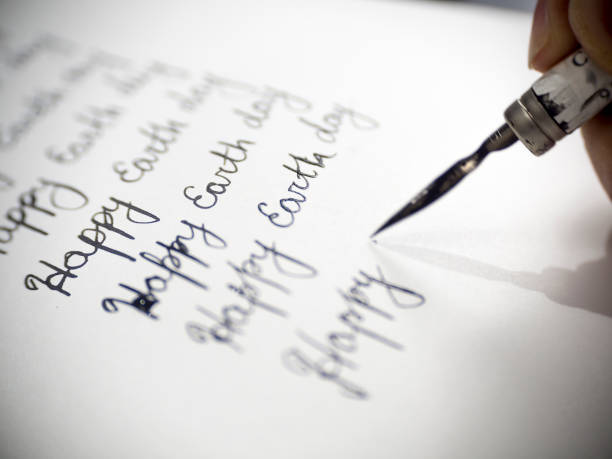 Earth day
appy Earth day
Happy Earth day
Happy Earth day
Happy Earth day
Happy